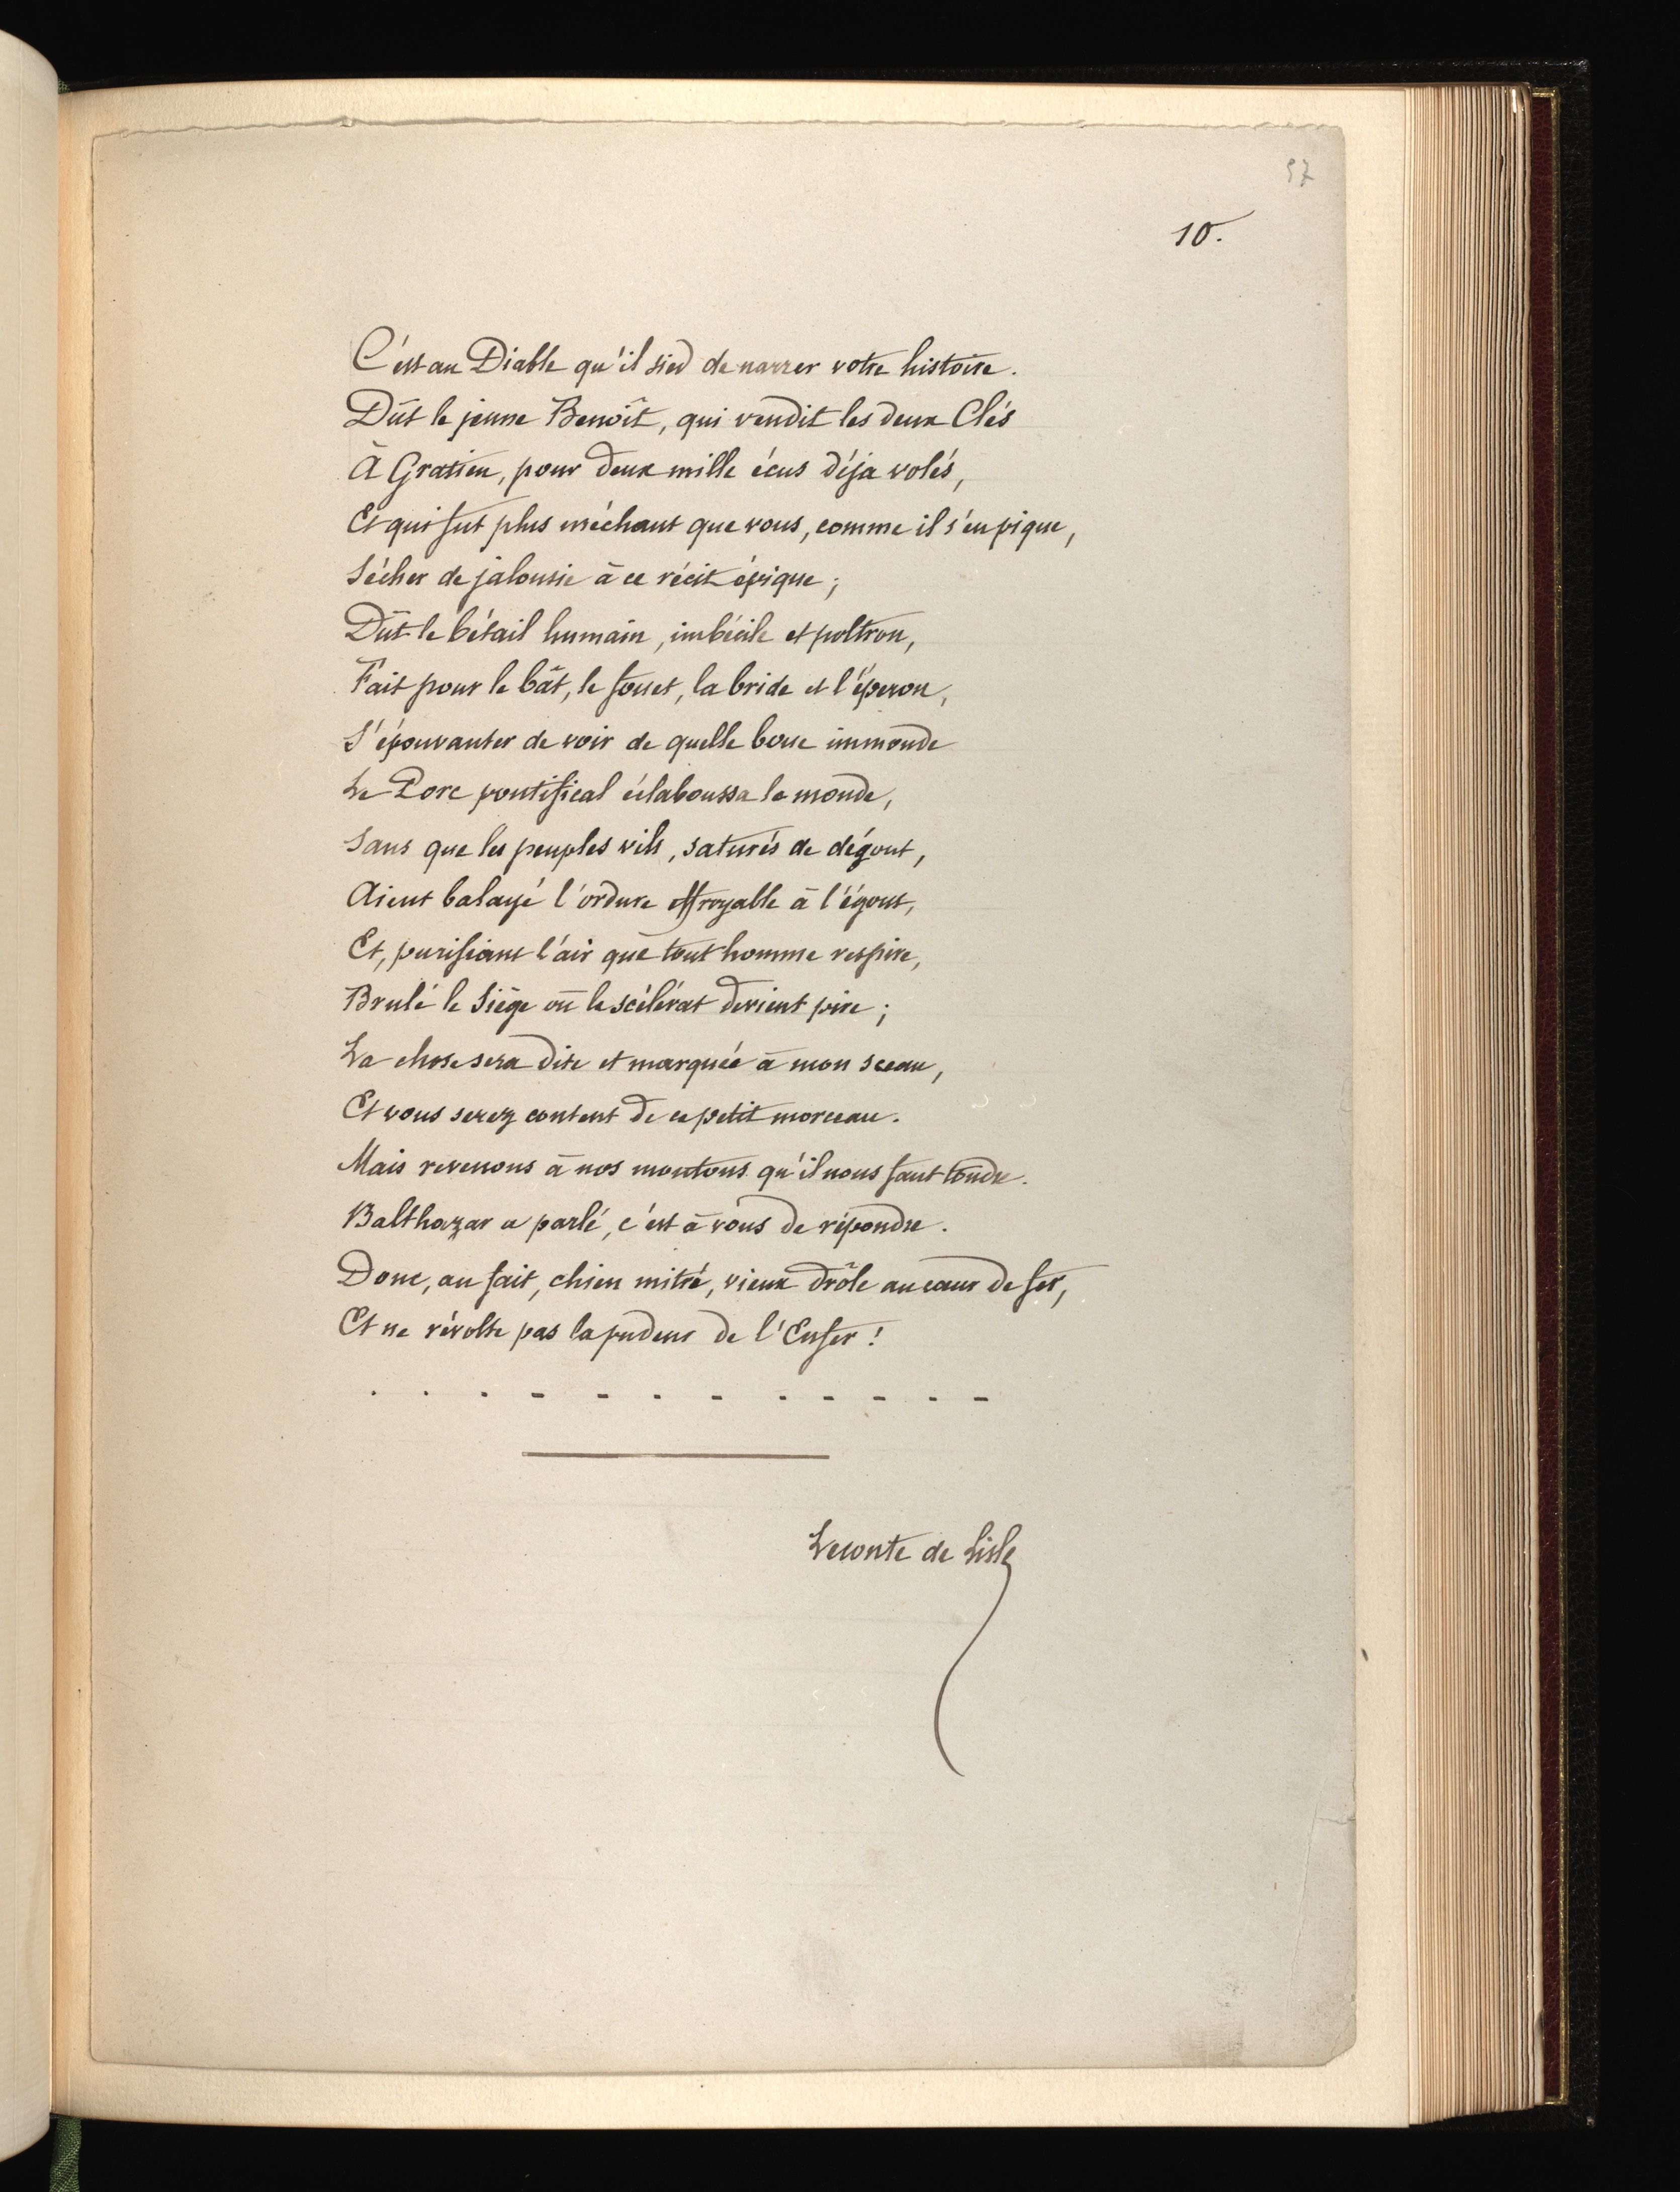 97
10.
C'est au Diable qu'il sied de narrer votre histoire.
Dût le jeune Benoît, qui vendit les deux Clés
À Gratien, pour deux mille écus déja volés,
Et qui fut plus méchant que vous, comme il s'en pique,
Sécher de jalousie à ce récit épique ;
Dût le bétail humain, imbécile et poltron,
Fait pour le bât, le fouet, la bride et l'éperon,
S'épouvanter de voir de quelle boue immonde
Le Porc pontifical éclaboussa le monde,
Sans que les peuples vils, saturés de dégout,
Aient balayé l'ordure effroyable à l'égout,
Et, purifiant l'air que tout homme respire,
Brulé le Siège où le scélérat devient pire ;
La chose sera dite et marquée à mon sceau,
Et vous serez content de ce petit morceau.
Mais revenons à nos moutons qu'il nous faut tondre.
Balthazar a parlé, c'est à vous de répondre.
Donc, au fait, chien mitré, vieux drôle au cœur de fer,
Et ne révolte pas la pudeur de l'Enfer !
. . . - - - - - - - - -
Leconte de Lisle